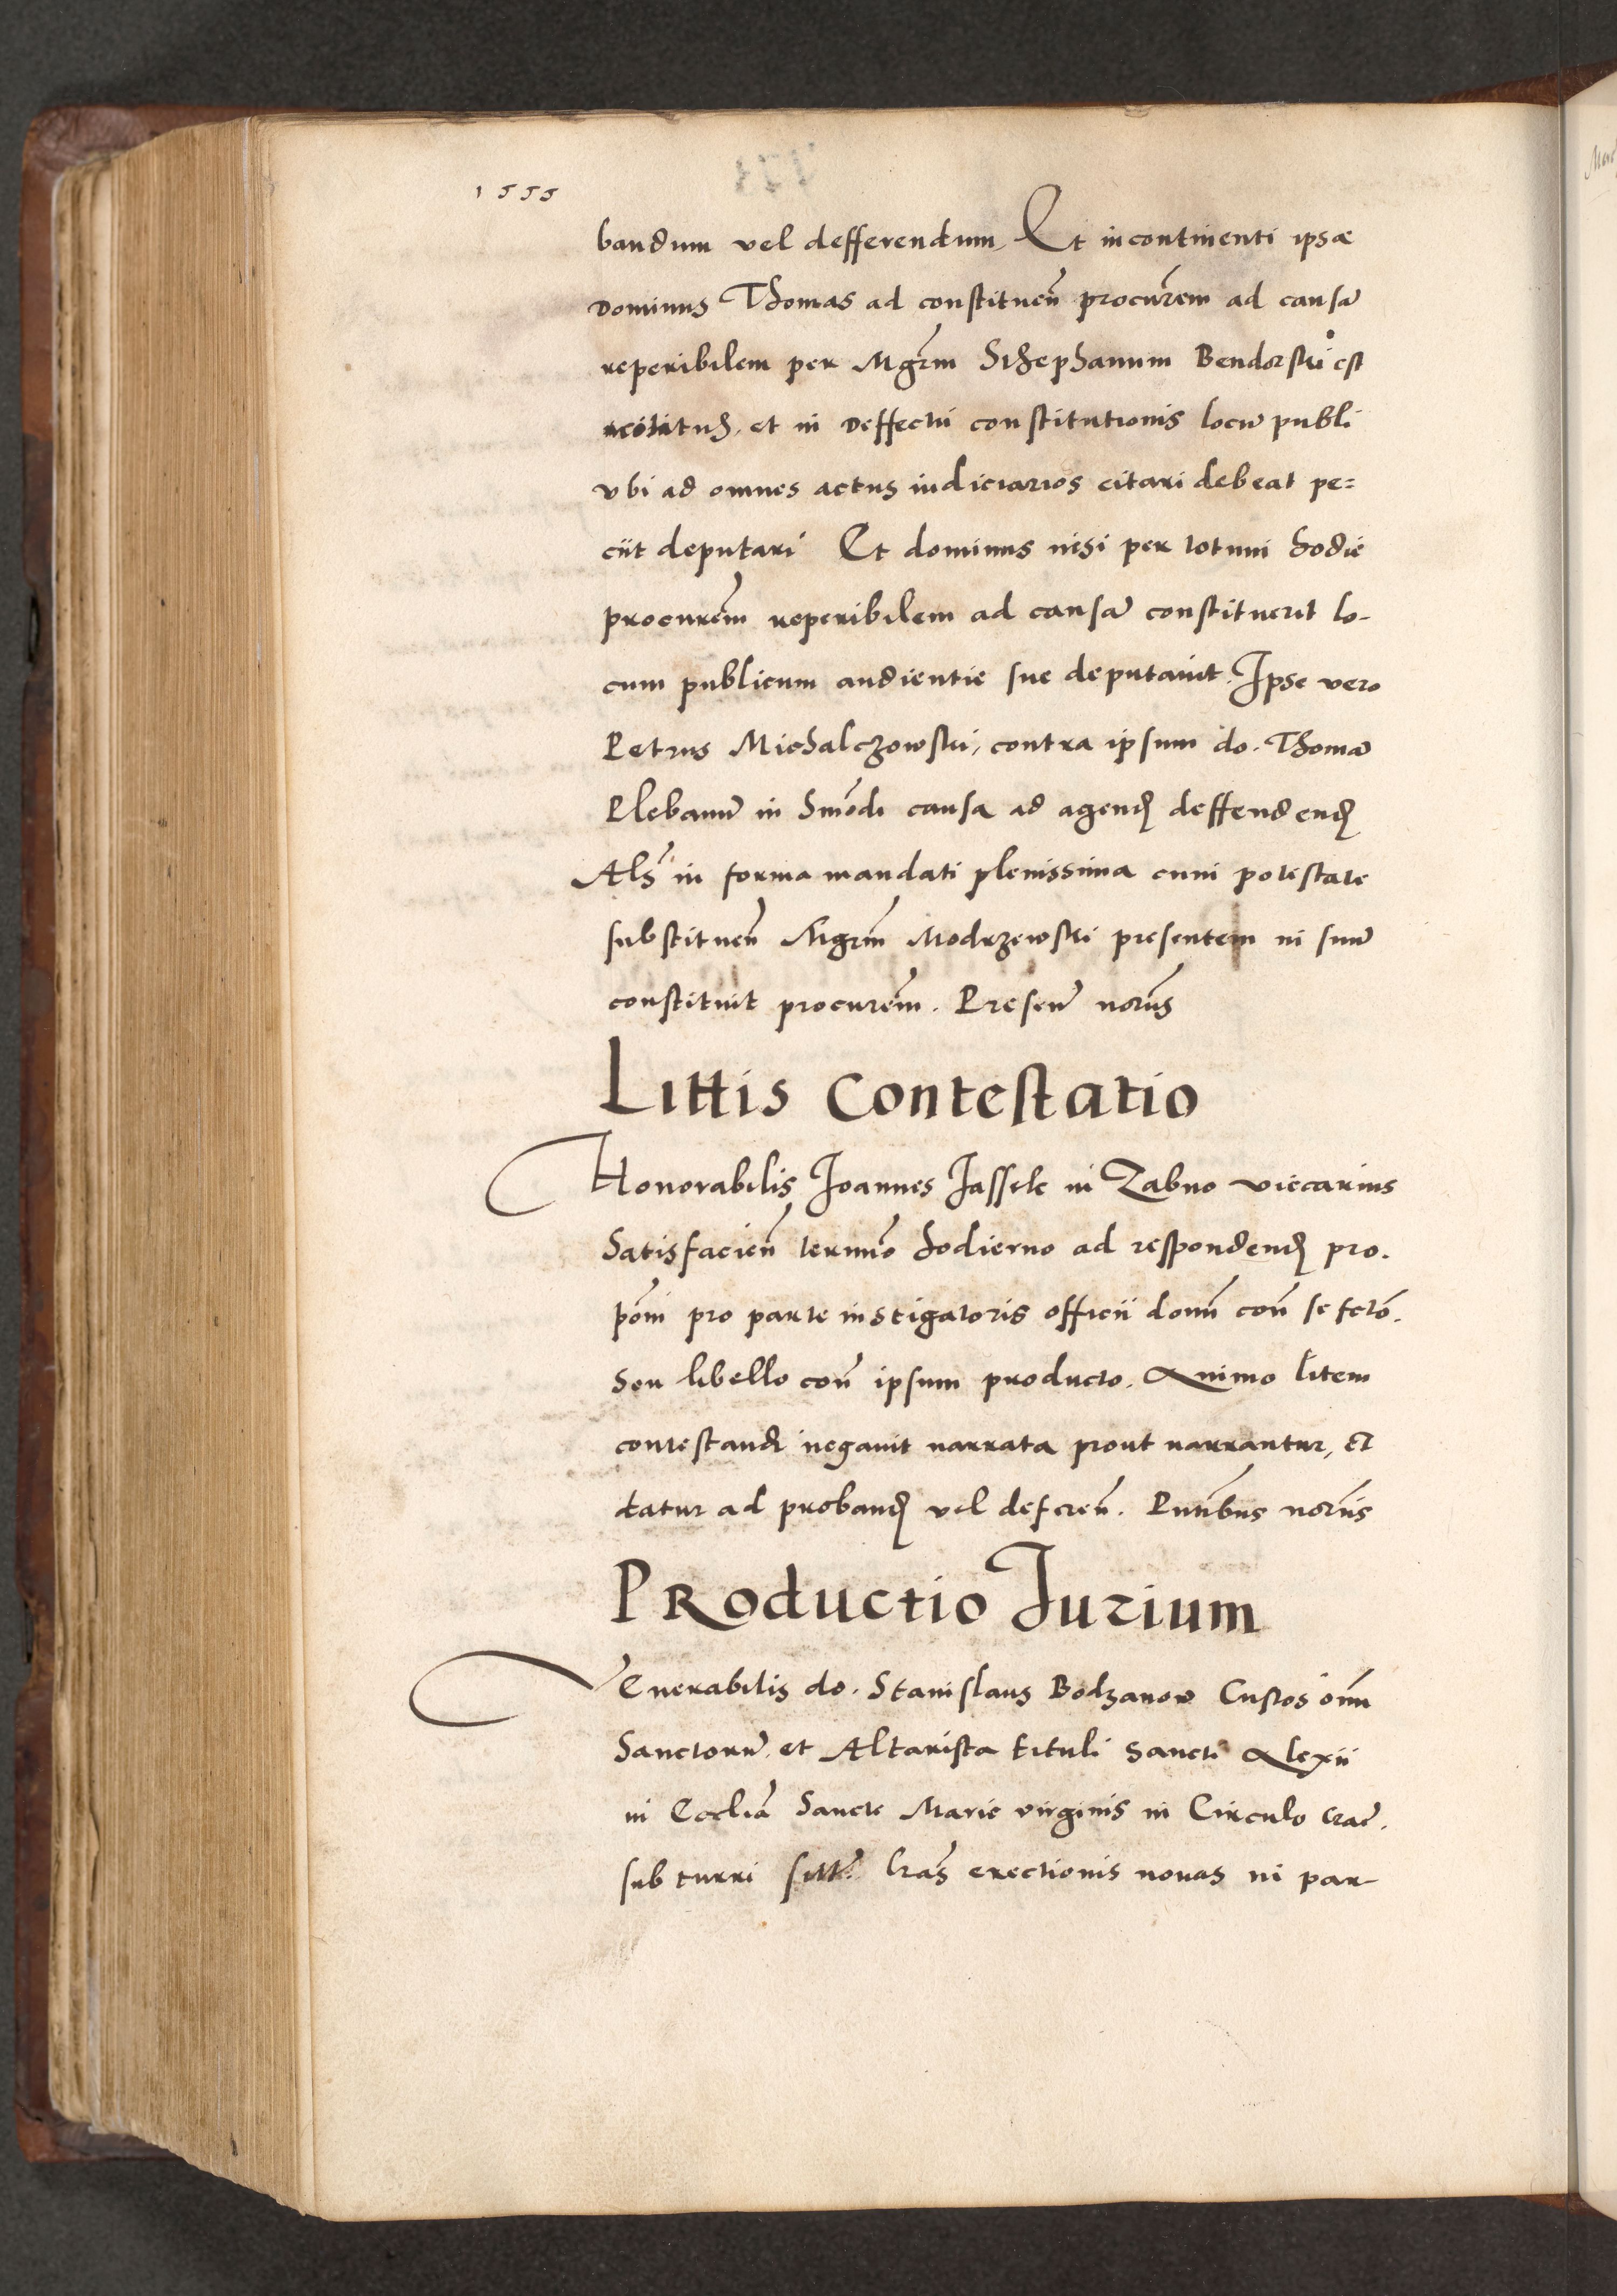 1555
bandum vel defferendum, Et incontinenti ipsæ
Dominus Thomas ad constituen̄ procur̄em ad causā
reperibilem per Mgr̄m Sthephanum Bendorski est
et in Deffectu constitutionis locū publi
vbi ad omnes actus iudiciarios citari debeat pe=
ciit deputari Et dominus nisi per totum hodie
procurēm reperibilem ad causā constituerit lo-
cum publicum audientie sue deputauit. Ipse vero
Petrus Michalczowski, contra ipsum do. Thomā
Plebanū in hmōdi causa ad agend deffendend
Als̄ in forma mandati plenissima cum potestate
substituen̄ Mgrm̄ Modrzewski presentem in suum
constituit procurēm. Presen̄ nor̄us
Littis Contestatio
Honorabilis Joannes Jassele in Zabno viccarius
Satisfacien̄ termīo hodierno ad respondend pro.
pōni pro parte instigatoris officii domn̄ con̄ se fctō.
Seu libello con̄ ipsum producto. Animo litem
contestandi negauit narrata prout narrantur, et
datur ad proband vel deferen̄. Pntībus nor̄iis
PRoductio Jurium
Venerabilis do. Stanislaus Bodzanow Custos om̄
Sanctorū et Altarista tituli Sancti Alexii
in Ecclīa Sancte Marie virginis in Circulo Crac̄.
sub turri sitt. lrās erectionis nouas in par-